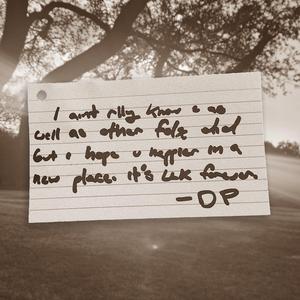 I aint rlly know u as
well as other folx did
but i hope u happier in a
new place. it's LLK forever
-DP